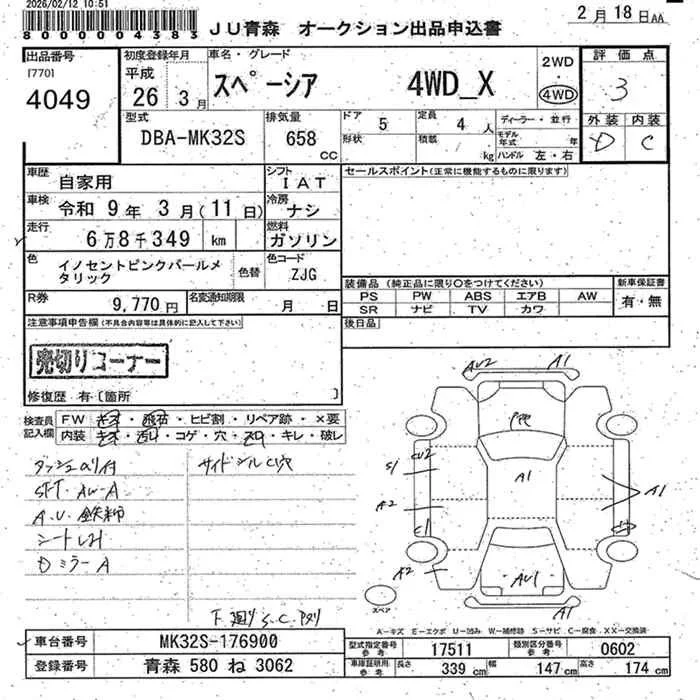 2026/02/12 10:51
8000004383
JU青森 オークション出品申込書
2月18日AA
出品番号
[770]
4049
初度登録年月
平成
26 3月
車名・グレード
スペーシア 4WD_X
2WD
4WD
評価点
3
外装 内装
D C
型式
DBA-MK32S
排気量
658 cc
ドア 5
形状
定員 4人
積載 kg
ディーラー・並行
モデル年式 年
ハンドル 左・右
車歴
自家用
シフト
IAT
車検
令和 9年 3月(11日)
冷房
ナシ
走行
6万8千349 km
燃料
ガソリン
色
イノセントピンクパールメタリック
色替
色コード
ZJG
R券
9,770円
名変通知期限
月 日
セールスポイント(正常に機能するものに限ります)
装備品 (純正品に限り○をつけてください)
PS PW ABS エアB AW
SR ナビ TV カワ
新車保証書
有・無
後日品
注意事項申告欄(不具合内容等は具体的に記入して下さい)
売切りコーナー
修復歴 有〔箇所 〕
検査員記入欄
FW キズ・飛石・ヒビ割・リペア跡・×要
内装 キズ・汚れ・コゲ・穴・・キレ・破レ
ダッシュのり付
サイドシルC穴
SFT・AW-A
A.U.鉄粉
シート
DミラーA
下廻りS.C.
AU2
A1
A1
AU1
A1
CU2
S1
A2
C1
A2
A1
スペア
A-キズ E-エクボ U-凹み W-補修跡 S-サビ C-腐食 XX-交換済
車台番号
MK32S-176900
登録番号
青森 580 ね 3062
型式指定番号
参考
17511
類別区分番号
参考
0602
車庫証明用
参考
長さ 339 cm
幅 147 cm
高さ 174 cm